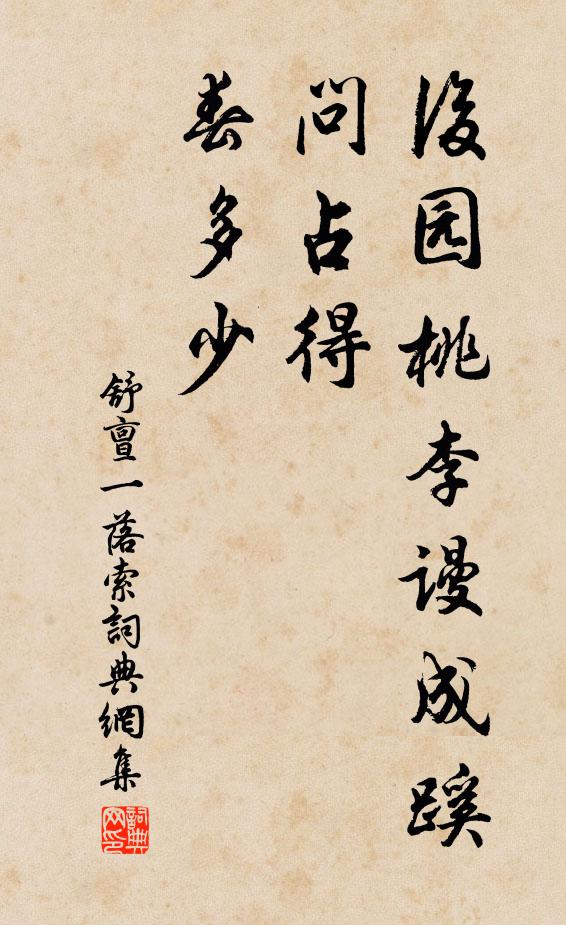 後园桃李謾成蹊
問占得
春多少
舒亶一落索詞典網集
詞典网印